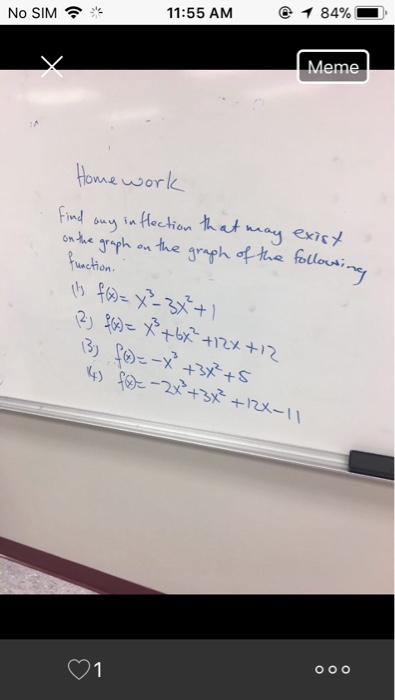 No SIM 11:55 AM 84%
Meme
Homework
Find any inflection that may exist
on the graph on the graph of the following
function.
(1) f(x)= x³-3x²+1
(2) f(x)= x³+6x²+12x+12
(3) f(x)=-x³+3x²+5
(4) f(x)= -2x³+3x²+12x-11
1